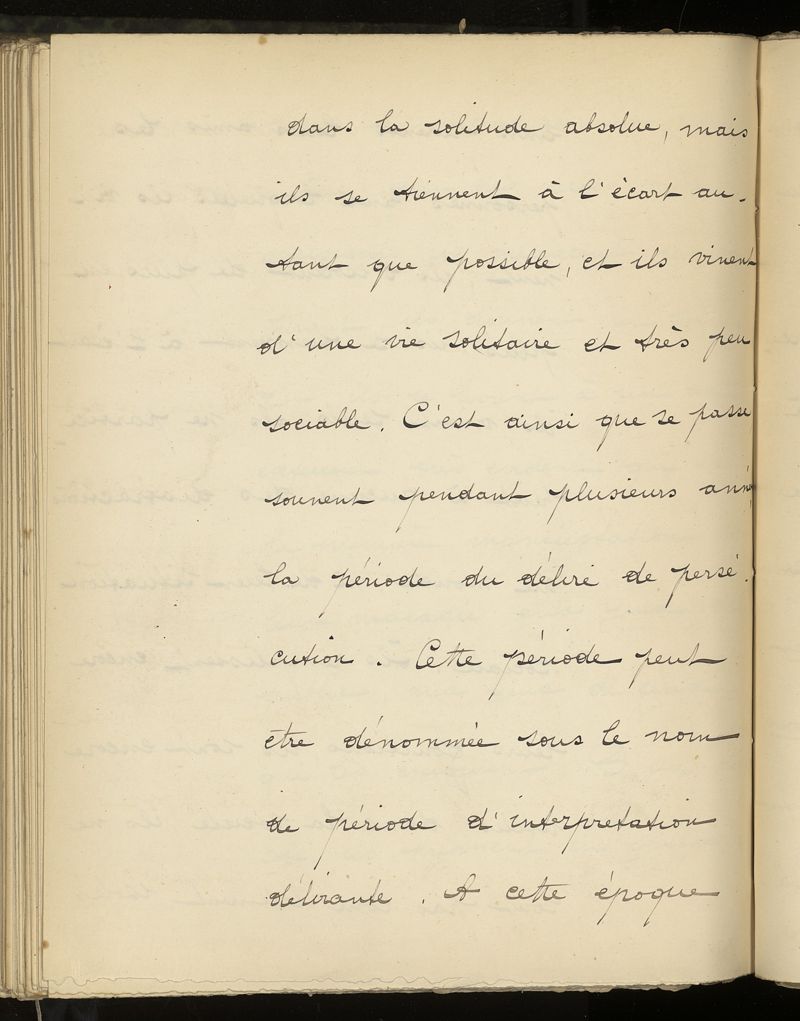 dans la solitude absolue, mais
ils se tiennent à l'écart au-
tant que possible, et ils vivent
d'une vie solitaire et très peu
sociable. C'est ainsi que se passe
souvent pendant plusieurs anné
la période du délire de persé-
cution. Cette période peut
être dénommée sous le nom
de période d'interpretation
délirante. A cette époque